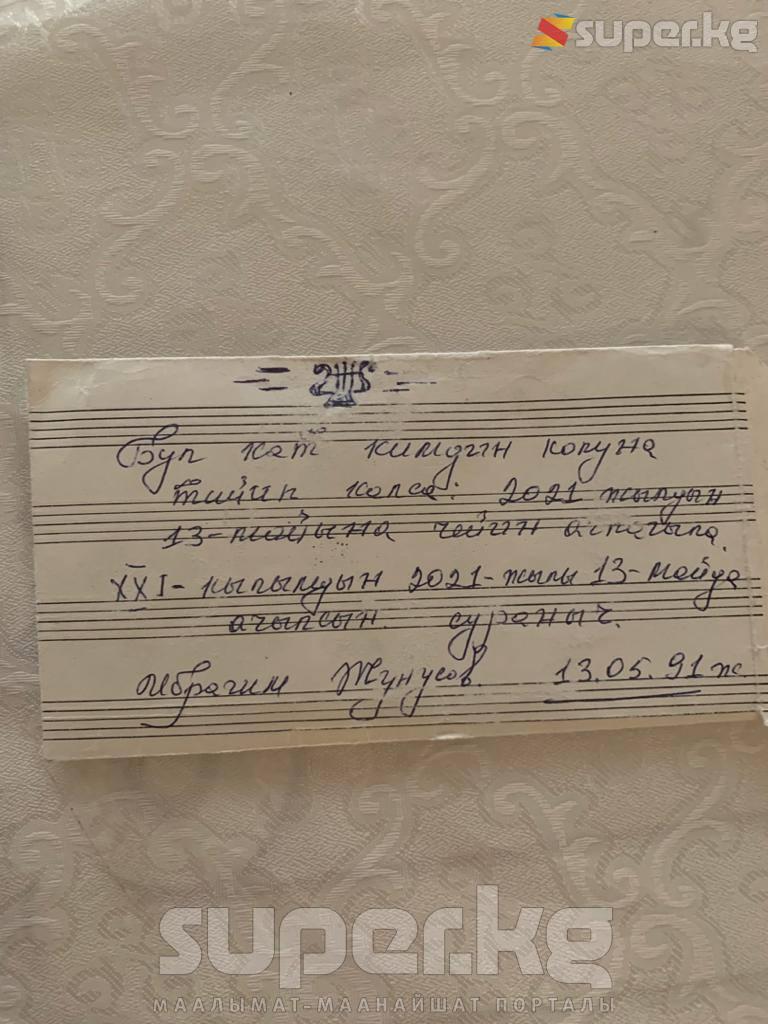 super.kg
Бул кат кимдин колуна
тийип калса: 2021 жылдын
13-майына чейин ачпагыла.
XXI-кылымдын 2021-жылы 13-майда
ачылсын. сураныч.
Ибрагим Жунусов. 13.05.91 ж
super.kg
МААЛЫМАТ-МААНАЙШАТ ПОРТАЛЫ